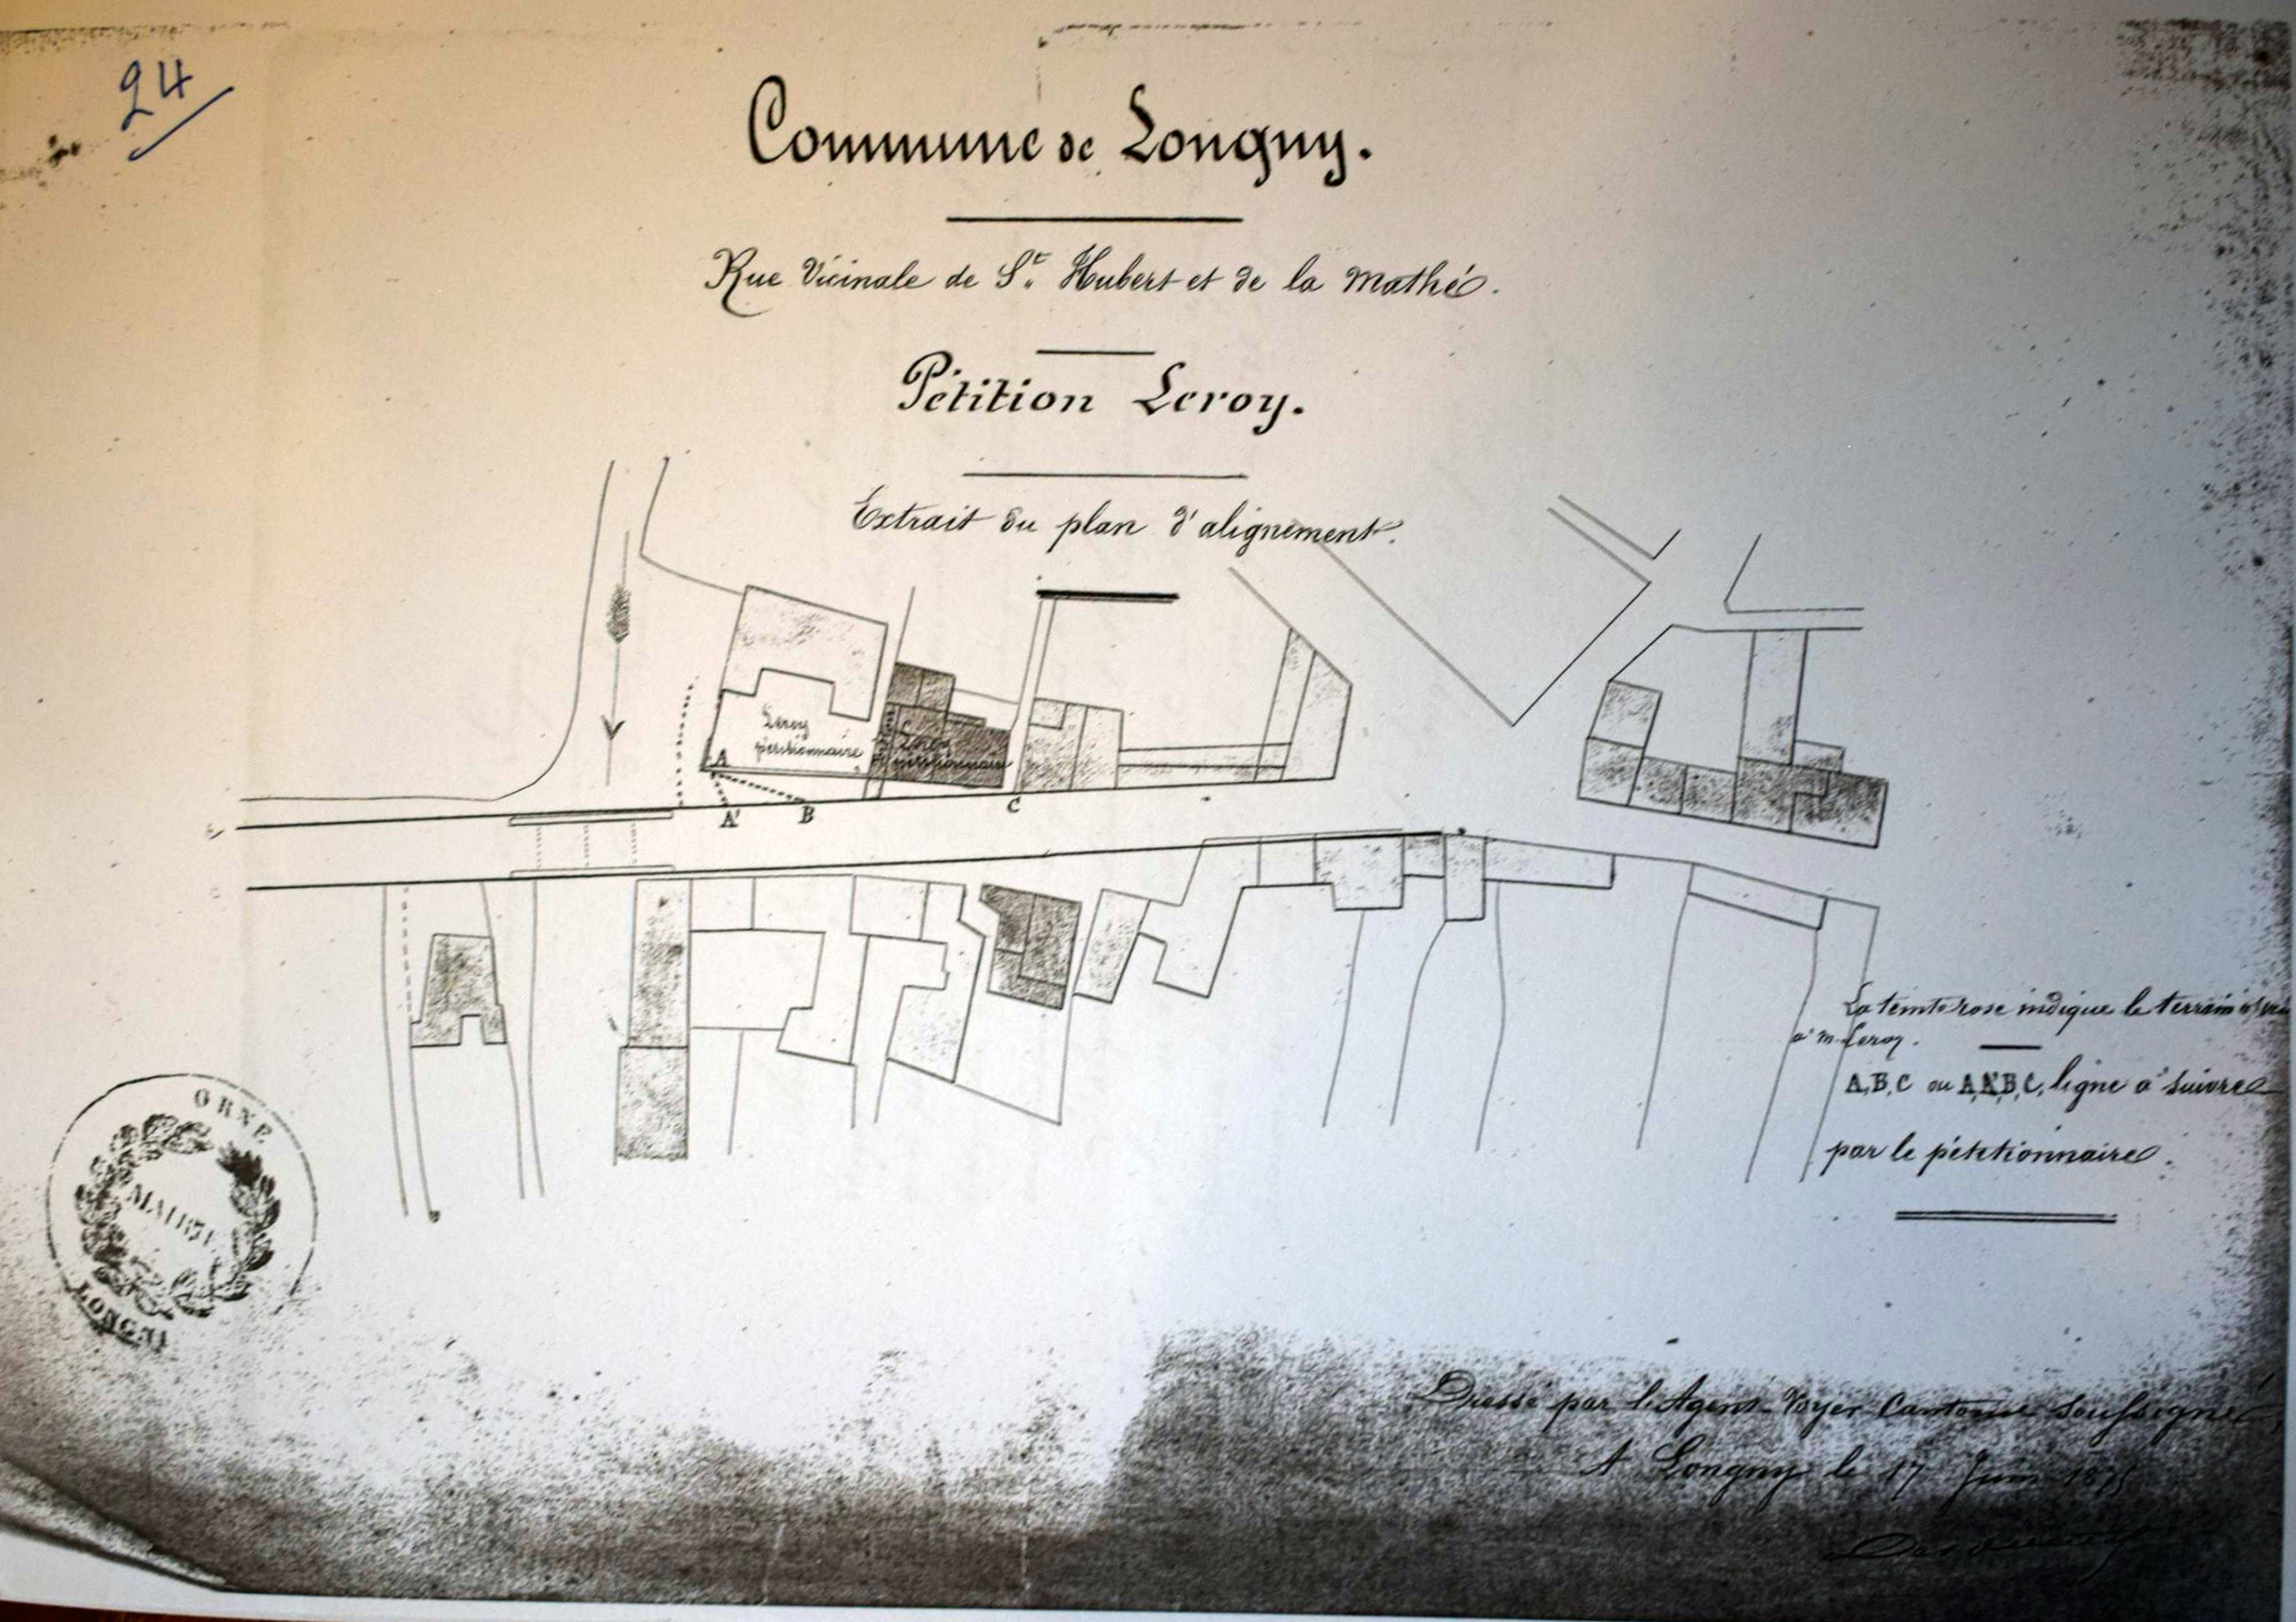 24
Commune de Longny.
Rue Vicinale de St. Hubert et de la Mathé.
Pétition Leroy.
Extrait du plan d'alignement.
Leroy
pétitionnaire
Leroy
pétitionnaire
A
A'
B
C
La teinte rose indique le terrain
à M. Leroy.
A,B,C ou A,A',B,C, ligne à suivre
par le pétitionnaire.
ORNE
MAIRIE
LONGNI
Dressé par l'Agent-Voyer Cantonal soussigné,
A Longny le 17 Juin